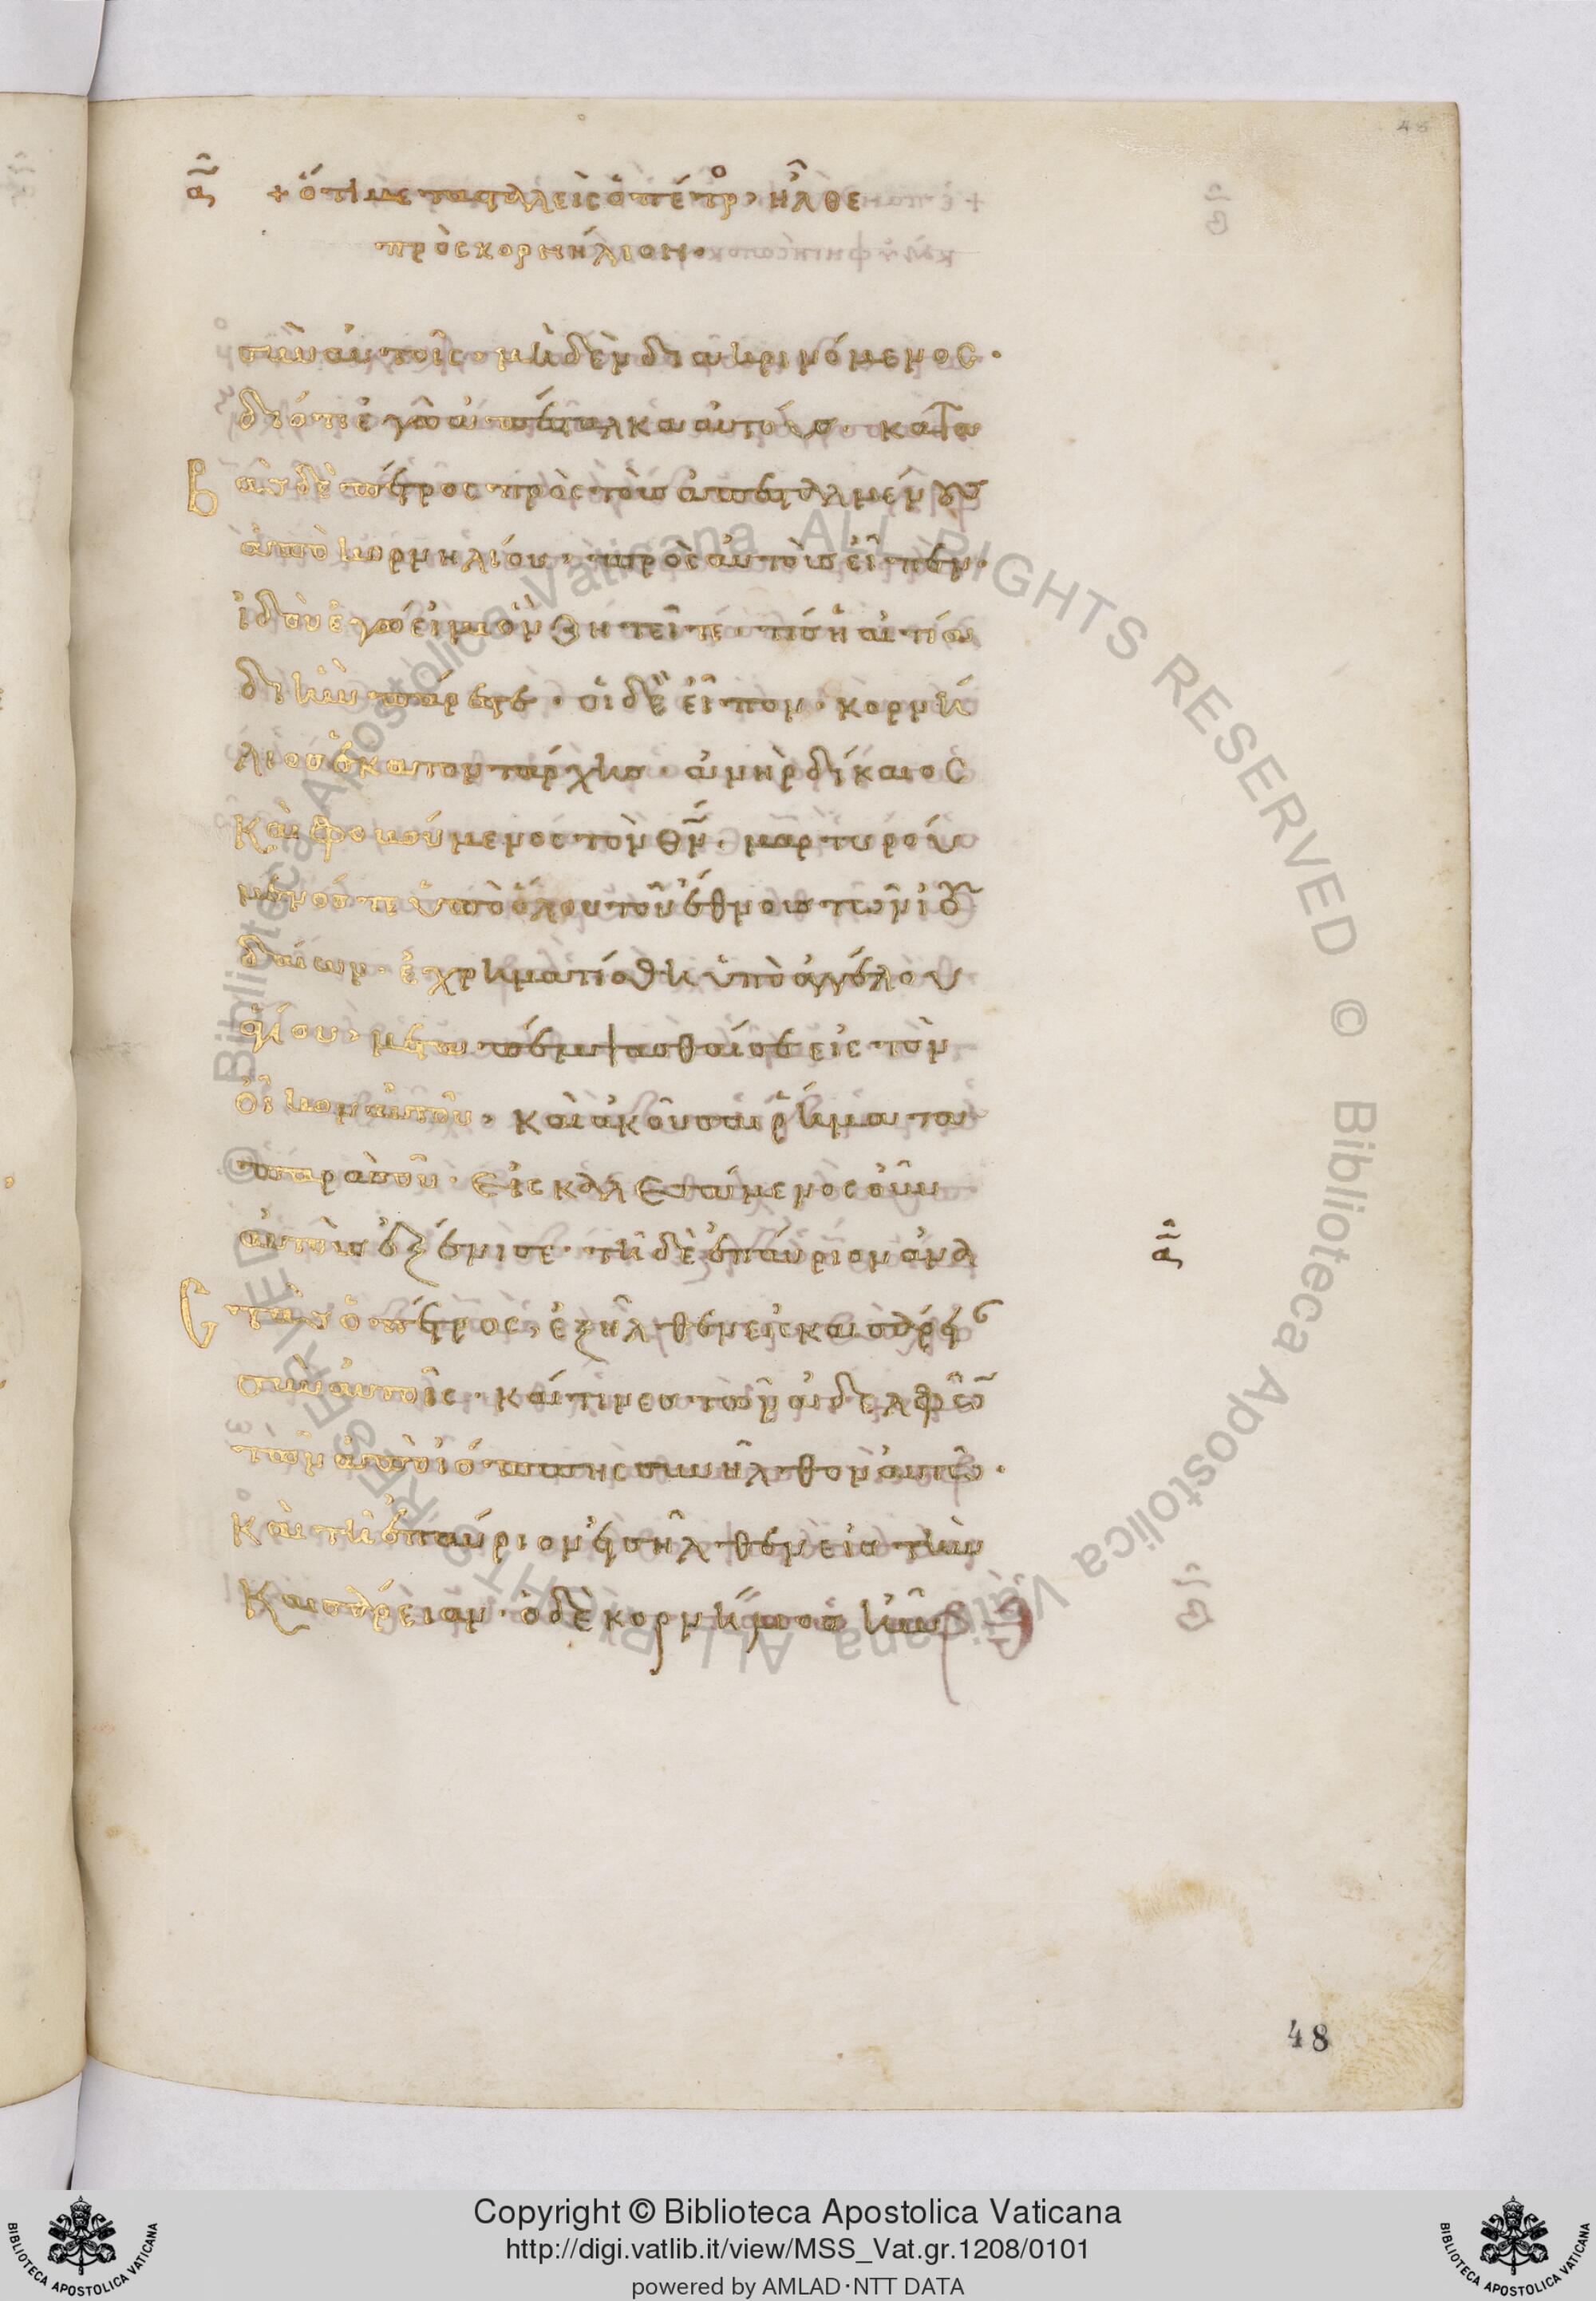 ᾱ + ὅτι μεταςταλεὶς ὁ πέτρο, ἦλθε
πρὸς κορνήλιον.
σὺν αὐτοῖς· μηδὲν διακρινόμενος·
διότι ἐγὼ ἀπέσταλκα αὐτούσ· κατα
βὰσ δὲ πέτρος πρὸς τοὺσ ἀπεσταλμένουσ
ἀπὸ κορνηλίου, πρὸς αὐτοὺσ εἶπεν·
ἰδοὺ ἐγώ εἰμι ὃν ζητεῖτε· τίσ ἡ αἰτία
δι ἣν πάρεστε· οἱ δὲ εἶπον· κορνή
λιοσ ἑκατοντάρχησ· ἀνὴρ δίκαιος
καὶ φοβούμενος τὸν θν̄· μαρτυρού
μενόσ τε ὑπὸ ὅλου τοῦ ἔθνουσ τῶν ἰου
δαίων· ἐχρηματίσθη ὑπὸ ἀγγέλου
ἁγίου, μεταπέμψασθαί σε εἰς τὸν
οἶκον αὐτοῦ, καὶ ἀκοῦσαι ῥήματα
παρὰ σοῦ· εἰςκαλεσάμενος οὖν
αὐτοὺσ ἐξένισε· τῆ δὲ ἐπαύριον ἀνα
στὰσ ὁ πέτρος, ἐξῆλθεν
σὺν αὐτοῖς· καί τινεσ τῶν ἀδελφῶν
τῶν ἀπὸ ἰόππης συνῆλθον αὐτῶ·
καὶ τῆ ἐπαύριον εἰσῆλθεν εἰσ τὴν
καισάρειαν· ὁ δὲ κορνήλιοσ ἦν
ᾱ
48
Copyright © Biblioteca Apostolica Vaticana
http://digi.vatlib.it/view/MSS_Vat.gr.1208/0101
powered by AMLAD·NTT DATA
BIBLIOTECA APOSTOLICA VATICANA
BIBLIOTECA APOSTOLICA VATICANA
© Biblioteca Apostolica Vaticana ALL RIGHTS RESERVED © Biblioteca Apostolica Vaticana ALL RIGHTS RESERVED